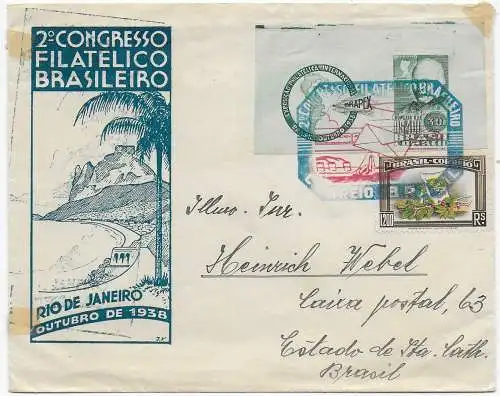 2º CONGRESSO
FILATELICO
BRASILEIRO
RIO DE JANEIRO
OUTUBRO DE 1938
J.V.
BRAPEX
2º CONGRESSO FILATELICO BRASILEIRO
CORREIO
BRASIL-CORREIO
1200 RS
Illmo. Snr.
Heinrich Webel
Caixa postal, 63
Estado de Sta. Cath.
Brasil